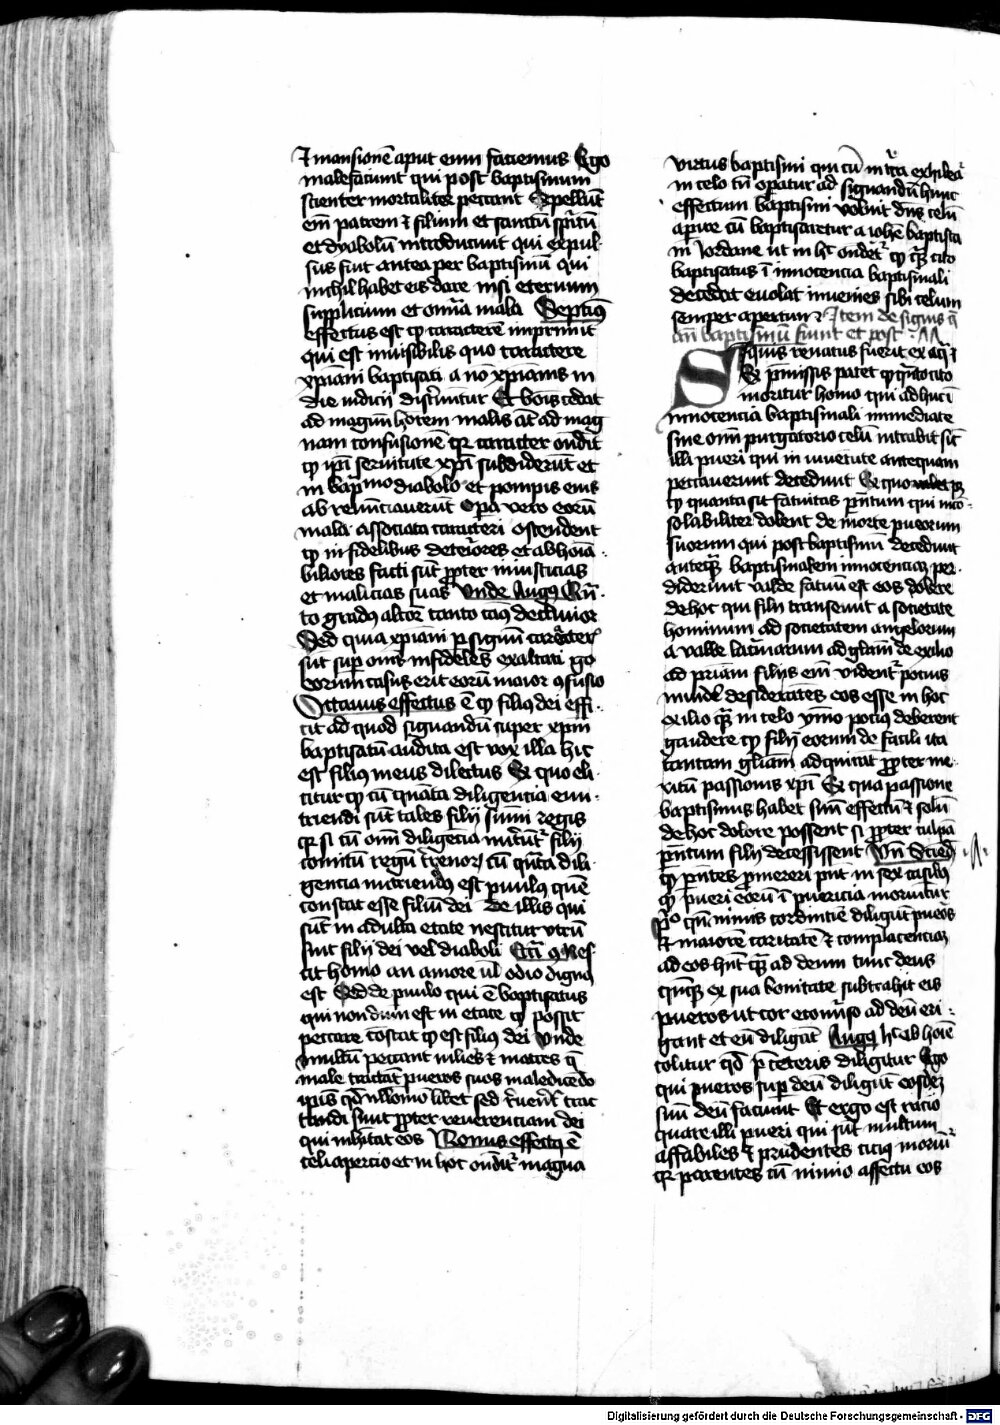 ⁊ mansionē aput eum faciemus Ergo
malefaciunt qui post baptismum
scienter mortaliter peccant Expellūt
em̄ patrem ⁊ filium et sanctū spūtū
et dyabolū introducunt qui expul-
sus fuit antea per baptismū qui
nichil habet eis dare nisi eternum
supplicium et omīa mala Septimꝰ
effectus est ꝙ caracterē imprimit
qui est invisibilis quo caractere
xp̄iani baptisati a nō xp̄ianis in
die iudicij discernūtur Et bonis cedat
ad magnū honorem malis aūt ad mag
nam confusionē qꝛ caracter ondit
ꝙ ip̄i servitute xp̄i subdiderūt et
in bap̄mo diabolo et pompis eius
ab renūnciaverūt Opera vero eorū
mala associata caracteri ostendent
ꝙ infidelibus deteriores et abhoīa-
biliores facti sūt ꝓpter iniusticias
et malicias suas Unde Augꝰ Quā
to gradꝰ altior tanto casꝰ declivior
Sed quia xp̄iani ꝑ signum caracteris
sūt sup̄ omēs infideles exaltati g̊
eorum casus erit eorū maior ꝯfusio
Octauus effectus ē ꝙ filiꝰ dei effi-
cit ad quod signandū super xp̄m
baptisatū audita est vox illa hic
est filiꝰ meus dilectus Ex quo eli-
citur ꝙ cū quāta diligencia enu-
triendi sūt tales filij sūmi regis
qꝛ si cū om̄i diligēcia nutriūtᷣ filij
comitū regū cū quāta dili-
gencia nutriendꝰ est puulꝰ quē
constat esse filiū dei De illis qui
sūt in adulta etate nescitur utrū
sint filij dei vel diaboli Ecc̄i 9 Nes-
cit homo an amore ul̄ odio dignꝰ
est Sed de puulo qui ē baptisatus
qui nondum est in etate ꝙ possit
peccare cōstat ꝙ est filiꝰ dei Unde
multū peccant mulieꝝ ⁊ matres q̄
male tractāt pueros suos maledicēdo
ipsis qd̄ nullomo licet sed reverēt᷑ trac
tandi sunt ꝓpter reverenciam dei
qui inhītat eos Nonus effectꝰ ē
celi apercio et in hoc ondit᷑ magna
virtus baptismi qui cū in t̄ra exhibeat᷑
in celo tn̄ operatur ad signandū hunc
effectum baptismi voluit dn̄s celū
aperire cū baptisaretur a iohē baptista
in Jordane ut in hͦ ondet᷑ ꝙ qꝫ cito
baptisatus ī innocencia baptismali
decedat euolat inueniēs sibi celum
semper apertum ⁊ Item de signis q̄
an̄ baptismū fiunt et post
Siquis renatus fuerit ex aq̄ ⁊
Ex p̄missis patet ꝙ quāto cito
moritur homo qui adhuc ī
innocencia baptismali immediate
sine om̄i purgatorio celū intrabit sic̄
illi pueri qui in iuuētute antequam
peccauerunt decedunt Ex quo
ꝙ quanta sit fatuitas parentum qui inco-
solabiliter dolent de morte puerorum
suorum qui post baptismū decedunt
anteqꝫ baptismalem innocenciam per-
diderunt valde fatuū est eos dolere
de hoc qui filij transeunt a societate
hominum ad societatem angelorum
a valle lacrimarum ad gloriam de exilio
ad patriam filijs em̄ videntᷣ pocius
invidere desiderātes eos esse in hoc
exilio qꝫ in celo ymo pocius deberent
gaudere ꝙ filij eorum de facili ita
tantam gloriam adquirāt ꝓpter me-
ritū passionis xp̄i Ex qua passione
baptismus habet suū effectū ⁊ solū
de hoc dolore possent si ꝓpter culpā
parentum filij decessissent Un̄ Sciend̄
ꝙ parentes promereri pn̄t in sex casibꝰ
ꝙ pueri eorū ī puericia moriūtur
pᵒ qn̄ nimis cordintiē diligūt pueros
⁊ maiorē caritatē ⁊ complacenciam
ad eos hn̄t qꝫ ad deum tunc deus
qn̄qꝫ ex sua bonitate subtrahit eis
pueros ut cor eorum so ad deū eri-
gant et eū diligāt Augꝰ hͦ ab hoīe
colitur qd̄ p̄ ceteris diligitur Ergo
qui pueros sup̄ deū diligūt eosdē
suū deū faciunt Et ergo est racio
quare illi pueri qui sūt multum
affabiles ⁊ prudentes cicius moriūtᷣ
qꝛ parentes cū nimio affectu eos
Digitalisierung gefördert durch die Deutsche Forschungsgemeinschaft - DFG